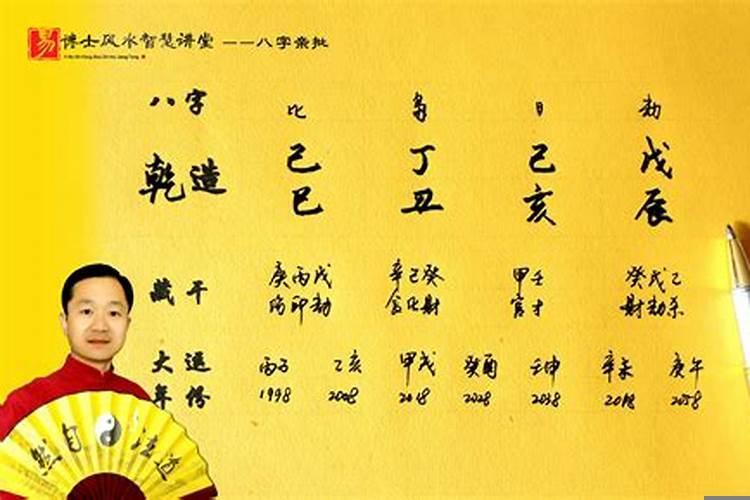 易 博士风水智慧讲堂 ——八字亲批
八字 比 枭 日 劫
乾造 己 丁 己 戊
巳 丑 亥 辰
藏干 庚丙戊 辛己癸 甲壬 癸戊乙
伤印劫 食比财 官才 财劫杀
大运 丙子 乙亥 甲戌 癸酉 壬申 辛未 庚午
年份 1998 2008 2018 2028 2038 2048 2058
道法自然